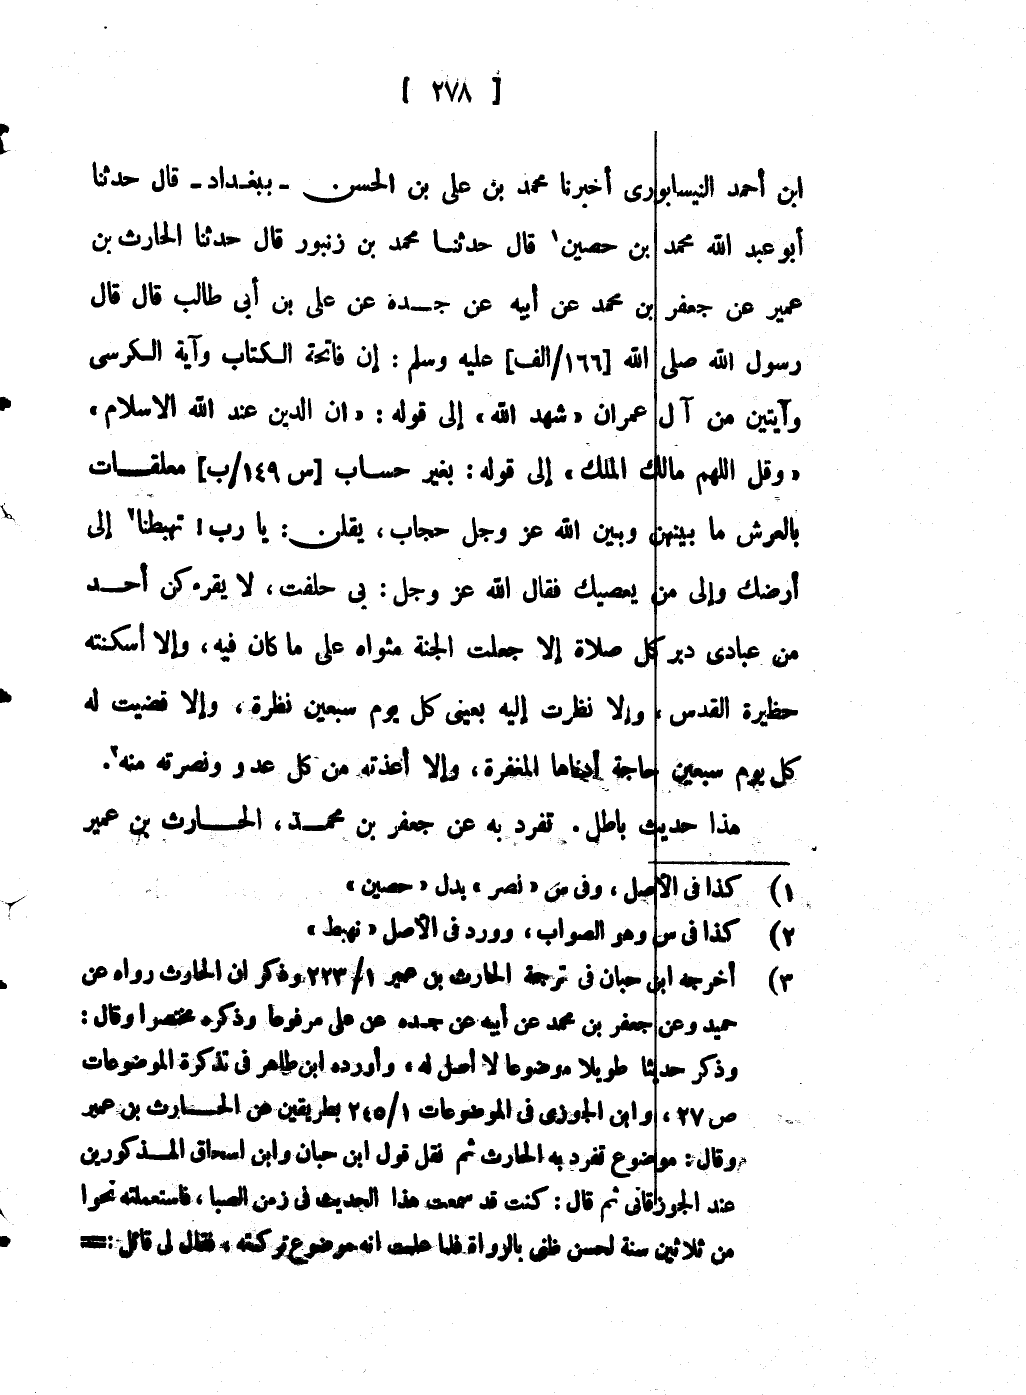 [ ٢٧٨ ]
ابن أحمد النيسابورى أخبرنا محمد بن على بن الحسن ـ ببغداد ـ قال حدثنا
أبو عبد الله محمد بن حصين١ قال حدثنا محمد بن زنبور قال حدثنا الحارث بن
عمير عن جعفر بن محمد عن أبيه عن جده عن على بن أبى طالب قال قال
رسول الله صلى الله [١٦٦/الف] عليه وسلم : إن فاتحة الكتاب وآية الكرسى
وآيتين من آل عمران « شهد الله » إلى قوله : « ان الدين عند الله الاسلام »
« وقل اللهم مالك الملك » إلى قوله : بغير حساب [س ١٤٩/ب] معلقات
بالعرش ما بينهن وبين الله عز وجل حجاب ، يقلن : يا رب ! تهبطنا٢ إلى
أرضك وإلى من يعصيك فقال الله عز وجل : بى حلفت ، لا يقرءكن أحد
من عبادى دبر كل صلاة إلا جعلت الجنة مثواه على ما كان فيه ، وإلا أسكنته
حظيرة القدس ، وإلا نظرت إليه بعينى كل يوم سبعين نظرة ، وإلا قضيت له
كل يوم سبعين حاجة أدناها المغفرة ، وإلا أعذته من كل عدو ونصرته منه٣.
هذا حديث باطل . تفرد به عن جعفر بن محمد ، الحارث بن عمير
١) كذا فى الأصل ، وفى س « نصر » بدل « حصين »
٢) كذا فى س وهو الصواب ، وورد فى الأصل « نهبط »
٣) أخرجه ابن حبان فى ترجمة الحارث بن عمير ٢٢٣/١ وذكر ان الحارث رواه عن
حميد وعن جعفر بن محمد عن أبيه عن جده عن على مرفوعا وذكره مختصرا وقال :
وذكر حديثا طويلا موضوعا لا أصل له ، وأورده ابن طاهر فى تذكرة الموضوعات
ص ٢٧ ، وابن الجوزى فى الموضوعات ٢٤٥/١ بطريقين عن الحارث بن عمير
وقال : موضوع تفرد به الحارث ثم نقل قول ابن حبان وابن اسحاق المذكورين
عند الجوزقانى ثم قال : كنت قد سمعت هذا الحديث فى زمن الصبا ، فاستعملته نحوا
من ثلاثين سنة لحسن ظنى بالرواة فلما علمت انه موضوع تركته ، فقال لى قائل : =